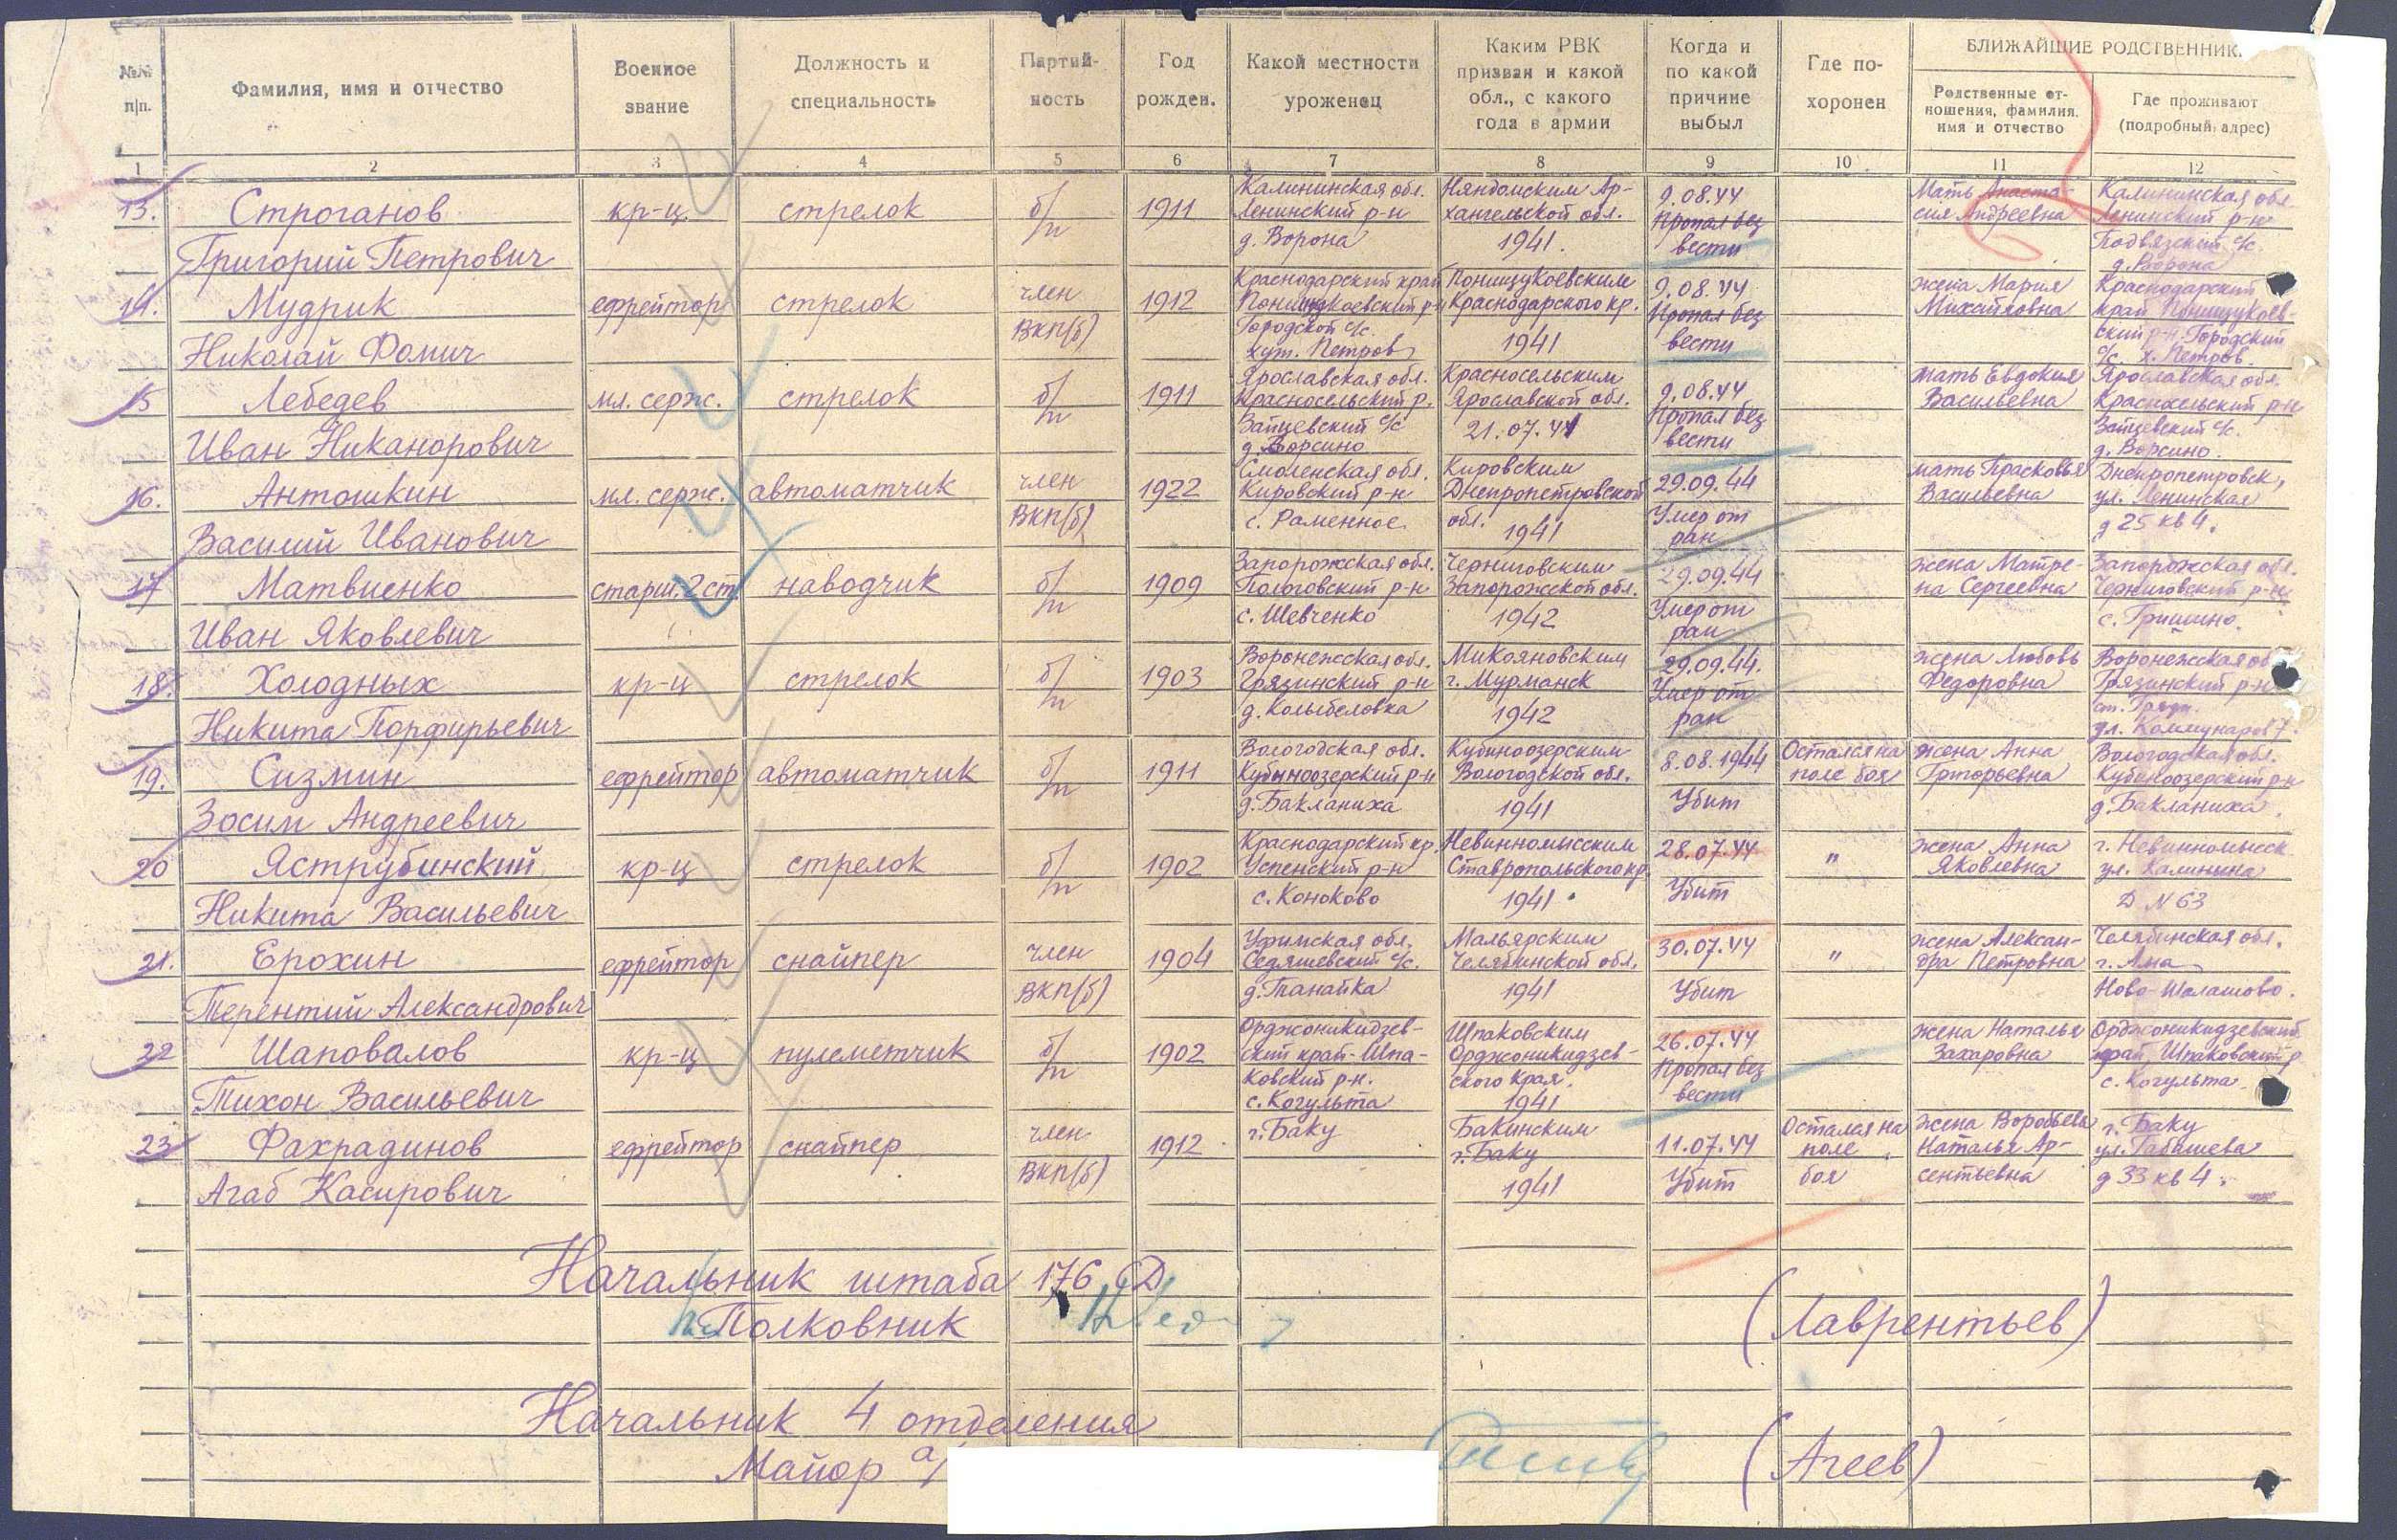 №№ п/п.
Фамилия, имя и отчество
Военное звание
Должность и специальность
Партий-ность
Год рожден.
Какой местности уроженец
Каким РВК призван и какой обл., с какого года в армии
Когда и по какой причине выбыл
Где по-хоронен
БЛИЖАЙШИЕ РОДСТВЕННИК
Родственные от-ношения, фамилия, имя и отчество
Где проживают (подробный адрес)
1 2 3 4 5 6 7 8 9 10 11 12
13. Строганов кр-ц стрелок б/п 1911 Калининская обл. Няндомским Ар- 9.08.44 Мать Анаста- Калининская обл.
Григорий Петрович Ленинский р-н хангельской обл. Пропал без сия Андреевна Ленинский р-н
д. Ворона 1941. вести Подвязский с/с.
д. Ворона
14. Мудрик ефрейтор стрелок член 1912 Краснодарский край 9.08.44 жена Мария Краснодарский
Николай Фомич ВКП(б) Краснодарского кр. Пропал без Михайловна край
Городской с/с. 1941 вести ский р-н. Городский
хут. Петров с/с х. Петров
15 Лебедев мл. серж. стрелок б/п 1911 Ярославская обл. Красносельским 9.08.44 мать Евдокия Ярославская обл.
Иван Никанорович Красносельский р. Ярославской обл. Пропал без Васильевна Красносельский р-н
Зайцевский с/с 21.07.41 вести Зайцевский с/с.
д. Ворсино д. Ворсино.
16. Антошкин мл. серж. автоматчик член 1922 Смоленская обл. Кировским 29.09.44 мать Прасковья Днепропетровск,
Василий Иванович ВКП(б) Кировский р-н Днепропетровской Умер от Васильевна ул. Ленинская
с. Раменное обл. 1941 ран д 25 кв 4.
17 Матвиенко старш. 2 ст наводчик б/п 1909 Запорожская обл. Черниговским 29.09.44 жена Матре- Запорожская обл.
Иван Яковлевич Пологовский р-н Запорожской обл. Умер от на Сергеевна Черниговский р-н
с. Шевченко 1942 ран с. Гришино.
18. Холодных кр-ц стрелок б/п 1903 Воронежская обл. Микояновским 29.09.44. жена Любовь Воронежская об
Никита Порфирьевич Грязинский р-н г. Мурманск Умер от Федоровна Грязинский р-н
д. Колыбеловка 1942 ран ст. Грязи.
ул. Коммунаров 7.
19. Сизмин ефрейтор автоматчик б/п 1911 Вологодская обл. Кубиноозерским 8.08.1944 Остался на жена Анна Вологодская обл.
Зосим Андреевич Кубиноозерский р-н Вологодской обл. Убит поле боя Григорьевна Кубиноозерский р-н
д. Бакланиха 1941 д. Бакланиха.
20 Яструбинский кр-ц стрелок б/п 1902 Краснодарский кр. Невинномысским 28.07.44 " жена Анна г. Невинномысск
Никита Васильевич Успенский р-н Ставропольского кр. Убит Яковлевна ул. Калинина
с. Коноково 1941. Д N 63
21. Ерохин ефрейтор снайпер член 1904 Уфимская обл. Мальярским 30.07.44 " жена Алексан- Челябинская обл.
Терентий Александрович ВКП(б) Седяшевский с/с. Челябинской обл. Убит дра Петровна г. Аша
д. Танайка 1941 Ново-Шалашово.
22 Шаповалов кр-ц пулеметчик б/п 1902 Орджоникидзев- Шпаковским 26.07.44 жена Наталья Орджоникидзевский
Тихон Васильевич ский край-Шпа- Орджоникидзев- Пропал без Захаровна край, Шпаковский р
ковский р-н. ского края. вести с. Когульта.
с. Когульта 1941
23 Фахрадинов ефрейтор снайпер член 1912 г. Баку Бакинским 11.07.44 Остался на жена Воробьева г. Баку
Агаб Касирович ВКП(б) г. Баку Убит поле Наталья Ар- ул. Габишева
1941 боя сентьевна д 33 кв 4.
Начальник штаба 176 СД
Полковник (Лаврентьев)
Начальник 4 отделения
Майор а/ (Агеев)